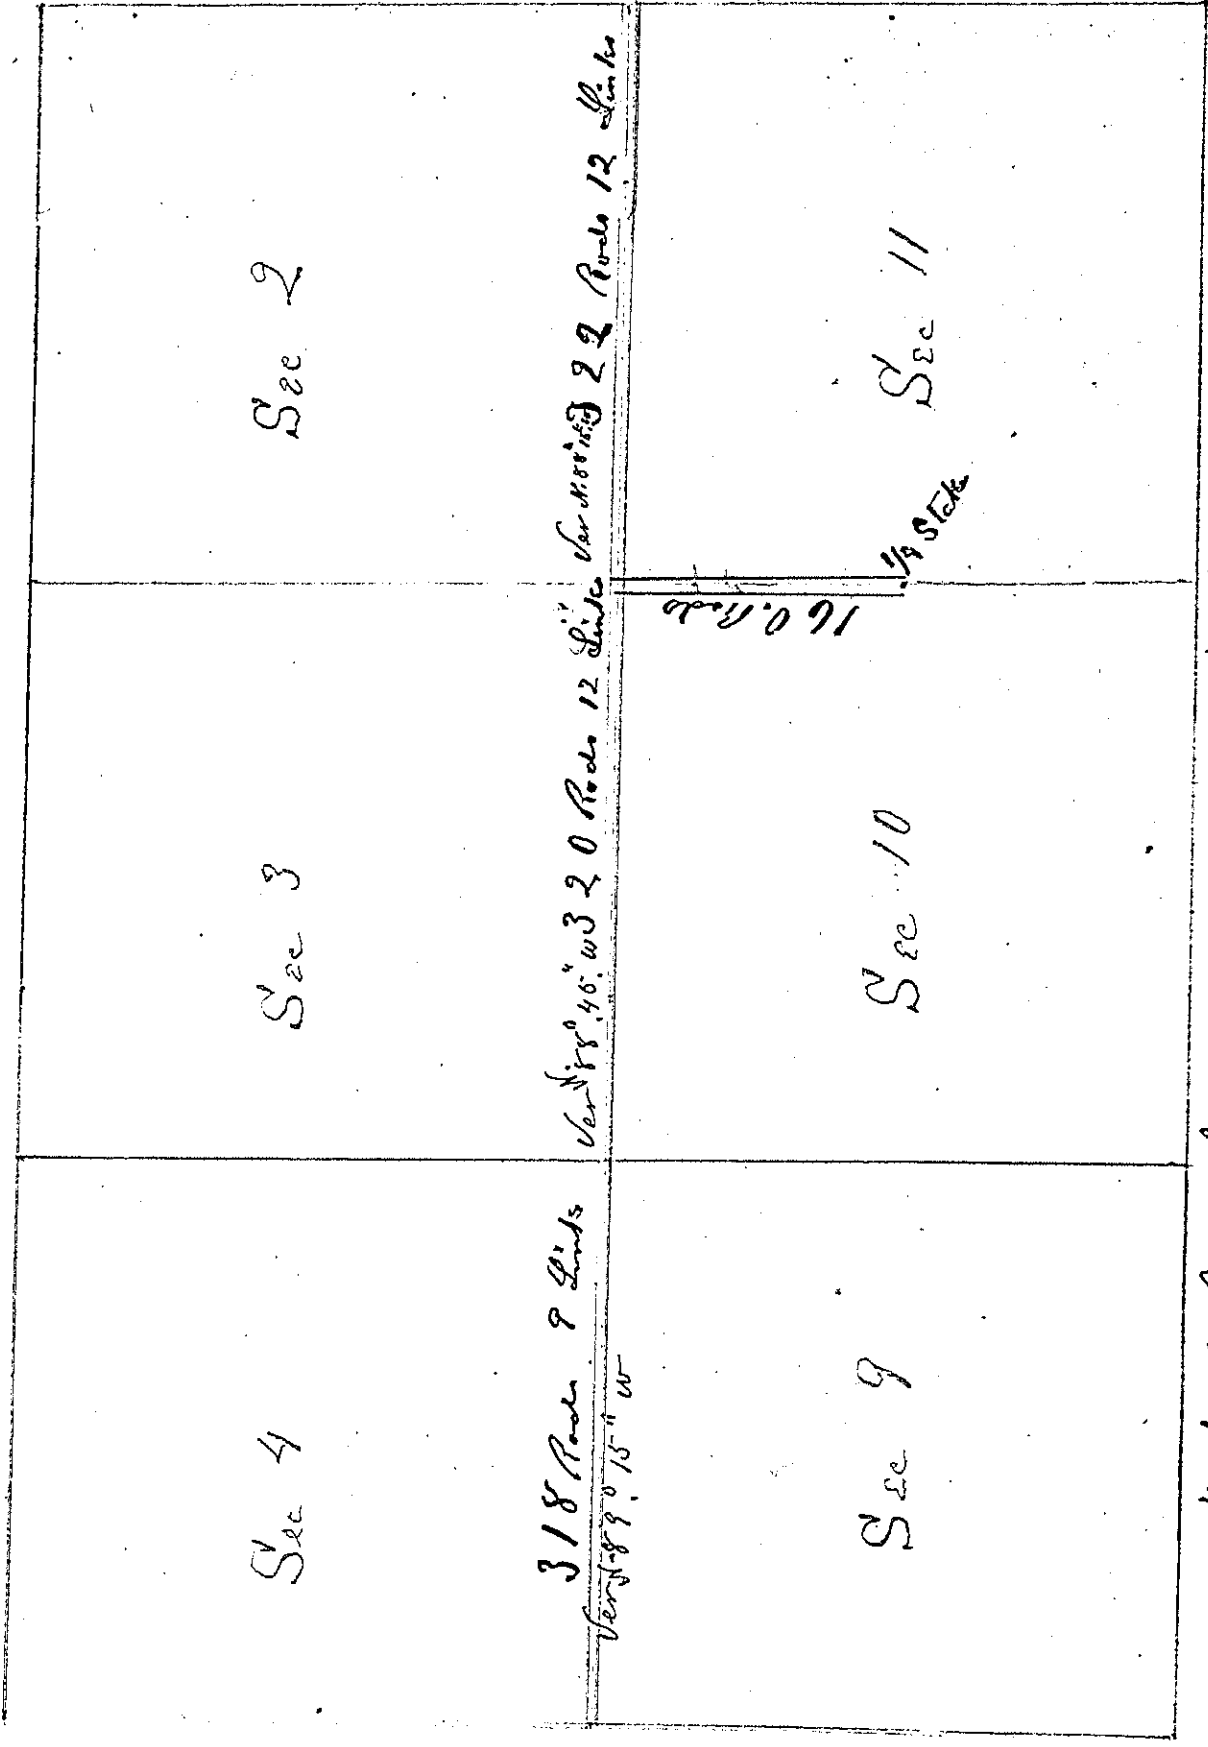 Sec 4
Sec 3
Sec 2
318 Rods 9 Links
Ver N. 89° 15" W
Ver N. 88°. 45" W 320 Rods 12 Links
Ver N. 88° 322 Rods 12 Links
160. Rods
1/4 Stake
Sec 9
Sec 10
Sec 11